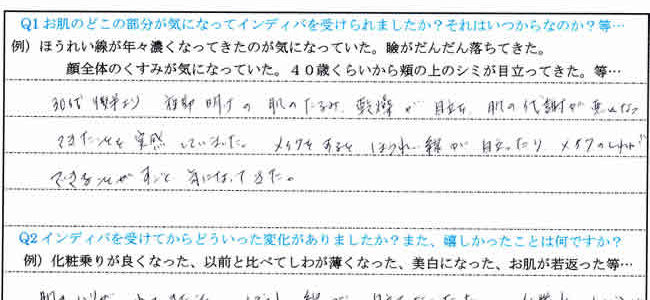 Q1 お肌のどこの部分が気になってインディバを受けられましたか？それはいつからなのか？等…
例）ほうれい線が年々濃くなってきたのが気になっていた。瞼がだんだん落ちてきた。
顔全体のくすみが気になっていた。４０歳くらいから頬の上のシミが目立ってきた。等…
30代 後半より 肌のたるみ、乾燥が 目立ち、肌の代謝が 悪くなっ
てきたことを 実感 していました。 メイクをすると ほうれい線が 目立ったり メイクのしわが
できることがすごく 気になってきた。
Q2 インディバを受けてからどういった変化がありましたか？また、嬉しかったことは何ですか？
例）化粧乗りが良くなった、以前と比べてしわが薄くなった、美白になった、お肌が若返った等…